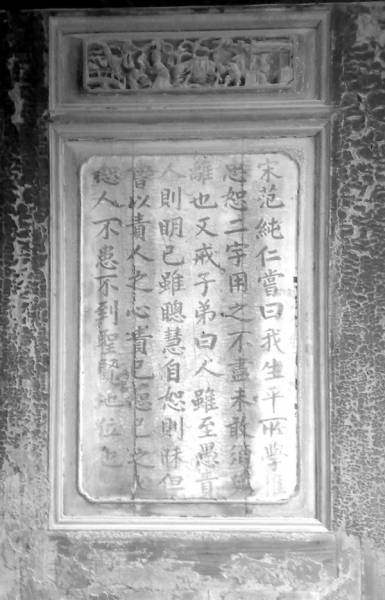 宋范純仁嘗曰我生平所學惟
忠恕二字用之不盡未敢須臾
離也又戒子弟曰人雖至愚責
人則明己雖聰慧自恕則昧但
當以責人之心責己恕己之心
恕人不患不到聖賢地位也